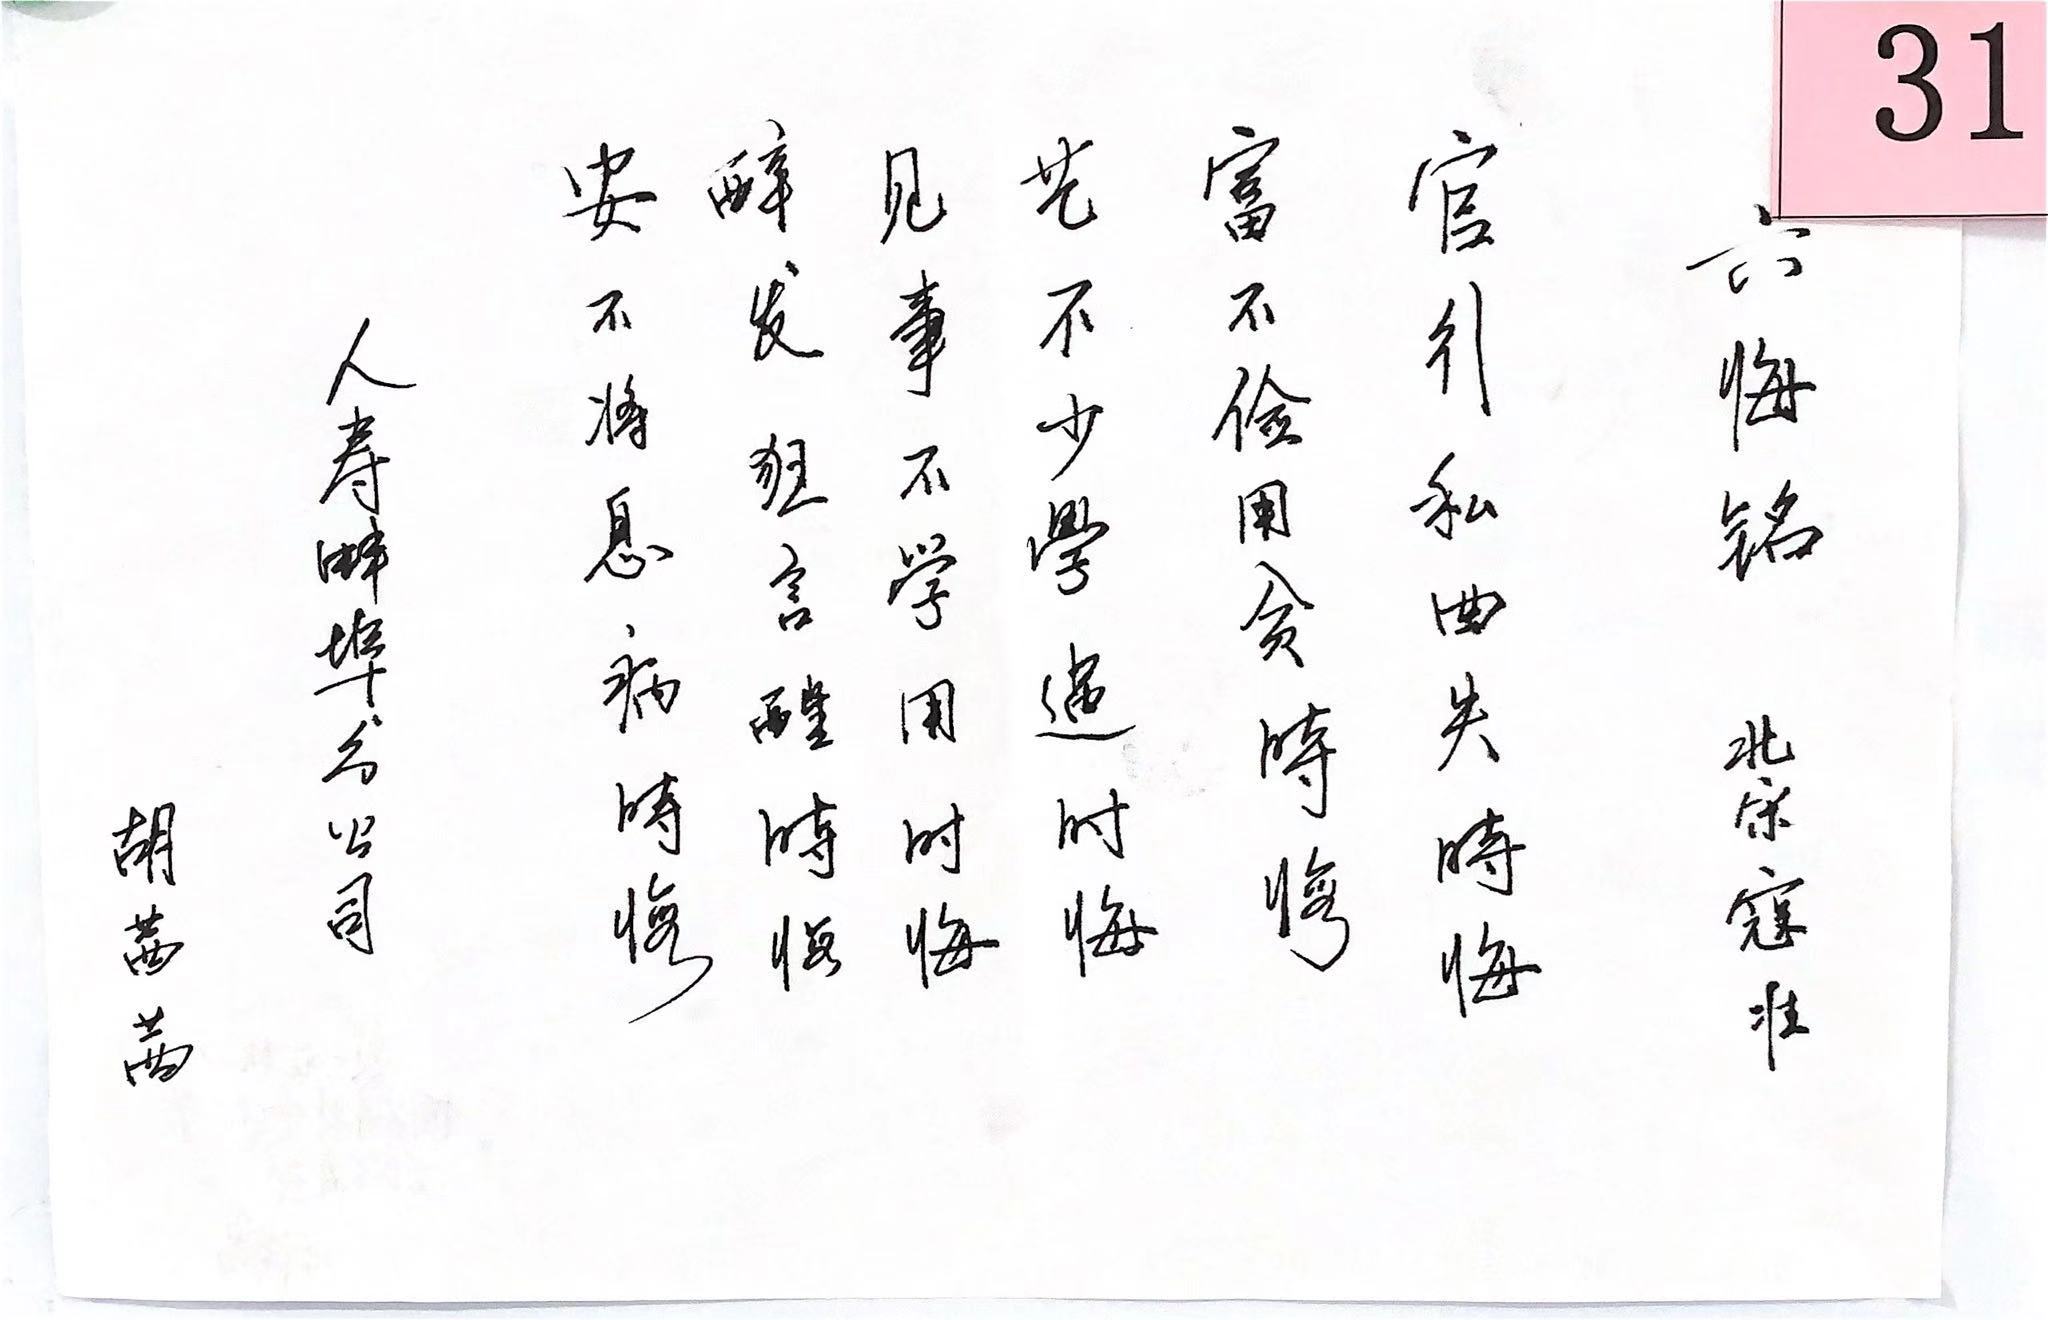 31
六悔铭 北宋寇准
官行私曲失時悔
富不俭用贫時悔
艺不少學過时悔
见事不学用时悔
醉发狂言醒時悔
安不将息病時悔
人寿蚌埠分公司
胡茜茜